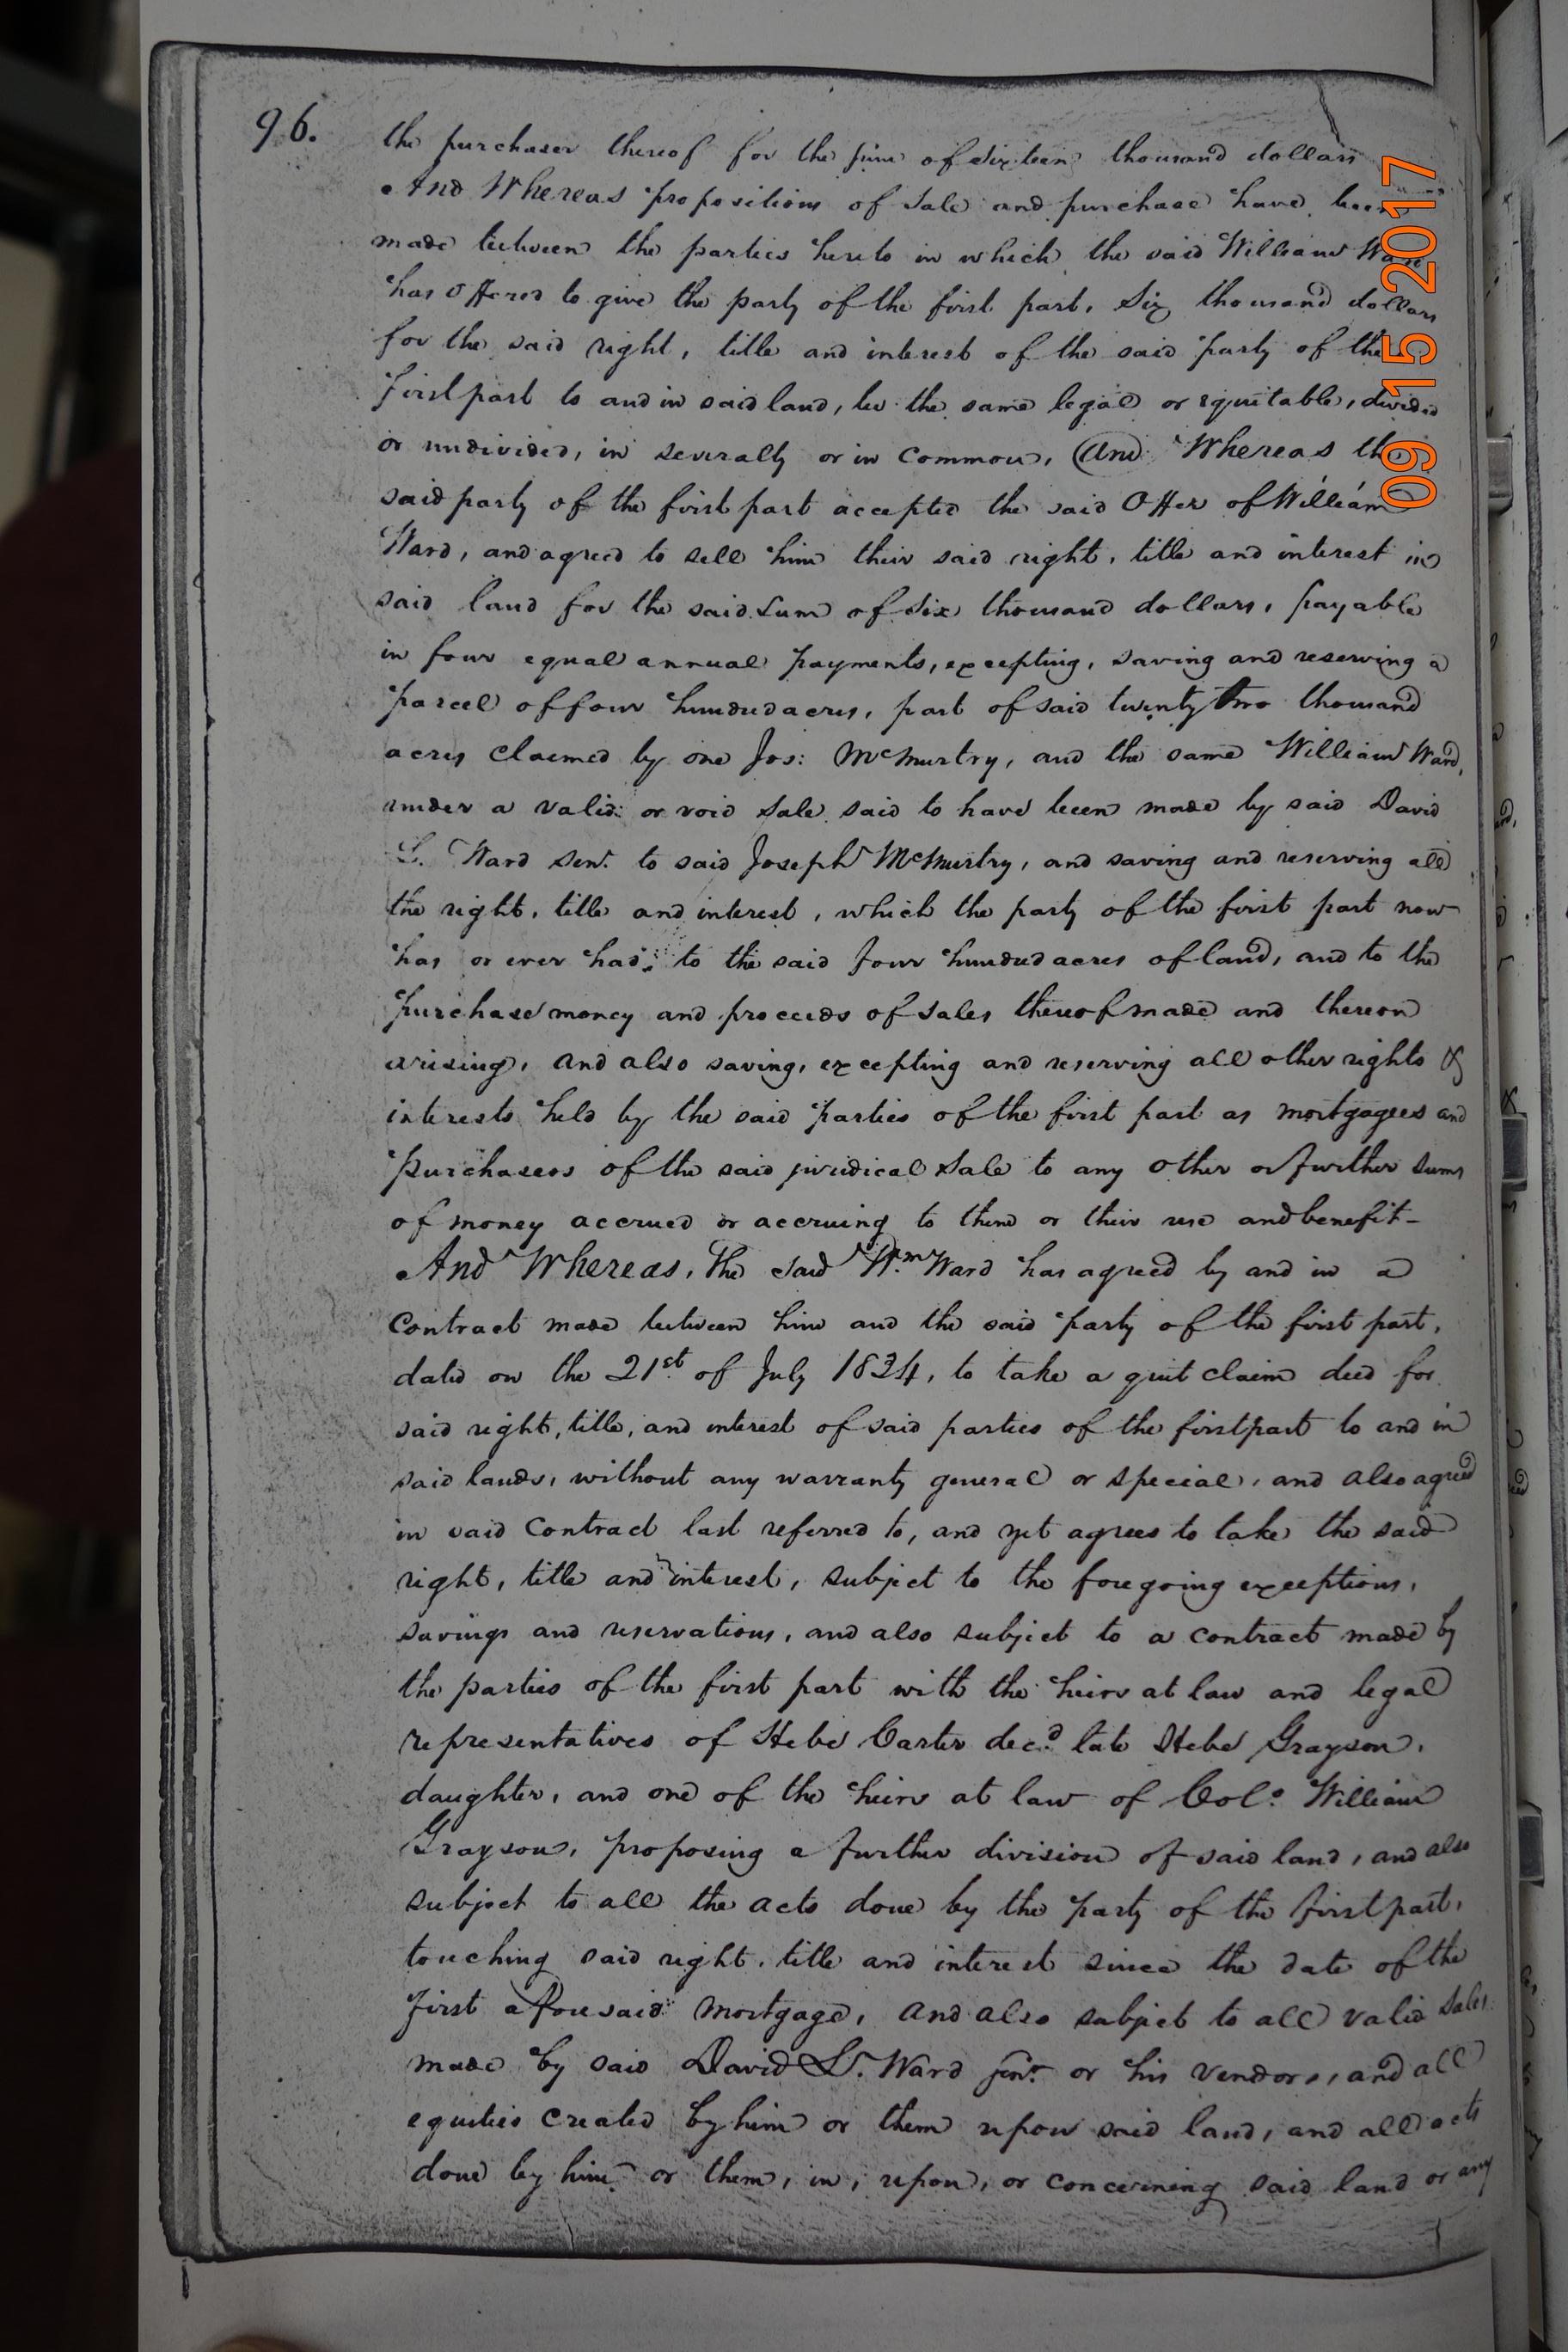 96.
the purchaser thereof for the sum of Sixteen thousand dollars
And Whereas propositions of sale and purchase have been
made between the parties hereto in which the said William Ward
has offered to give the party of the first part, Six thousand dollars
for the said right, title and interest of the said party of the
first part to and in said land, be the same legal or equitable, divided
or undivided, in severalty or in common, And Whereas the
said party of the first part accepted the said Offer of William
Ward, and agreed to sell him their said right, title and interest in
said land for the said Sum of Six thousand dollars, payable
in four equal annual payments, excepting, saving and reserving a
parcel of four hundred acres, part of said twenty two thousand
acres claimed by one Jos: McMurtry, and the same William Ward,
under a valid or void sale said to have been made by said David
L. Ward Senr. to said Joseph McMurtry, and saving and reserving all
the right, title and interest, which the party of the first part now
has or ever had, to the said four hundred acres of land, and to the
purchase money and proceeds of sales thereof made and thereon
arising, and also saving, excepting and reserving all other rights &
interests held by the said parties of the first part as mortgagees and
purchasers of the said juridical sale to any other or further sums
of money accrued or accruing to them or their use and benefit-
And Whereas, The said Wm. Ward has agreed by and in a
Contract made between him and the said party of the first part,
dated on the 21st. of July 1834, to take a quit claim deed for
said right, title, and interest of said parties of the first part to and in
said lands, without any warranty general or special, and also agreed
in said Contract last referred to, and yet agrees to take the said
right, title and interest, subject to the foregoing exceptions,
savings and reservations, and also subject to a contract made by
the parties of the first part with the heirs at law and legal
representatives of Hebe Carter decd. late Hebe Grayson,
daughter, and one of the heirs at law of Colo. William
Grayson, proposing a further division of said land, and also
subject to all the acts done by the party of the first part,
touching said right, title and interest since the date of the
first aforesaid mortgage, and also subject to all valid sales
made by said David L. Ward Senr. or his vendors, and all
equities created by him or them upon said land, and all acts
done by him or them, in, upon, or concerning said land or any
09 15 2017